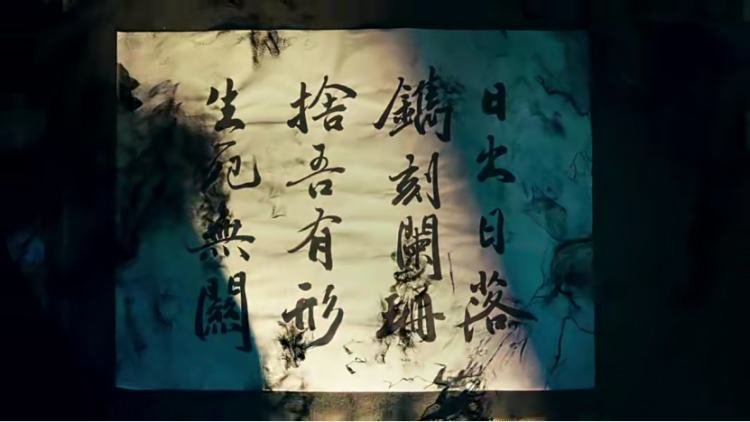 日出日落
鐫刻闌珊
捨吾有形
生死無關